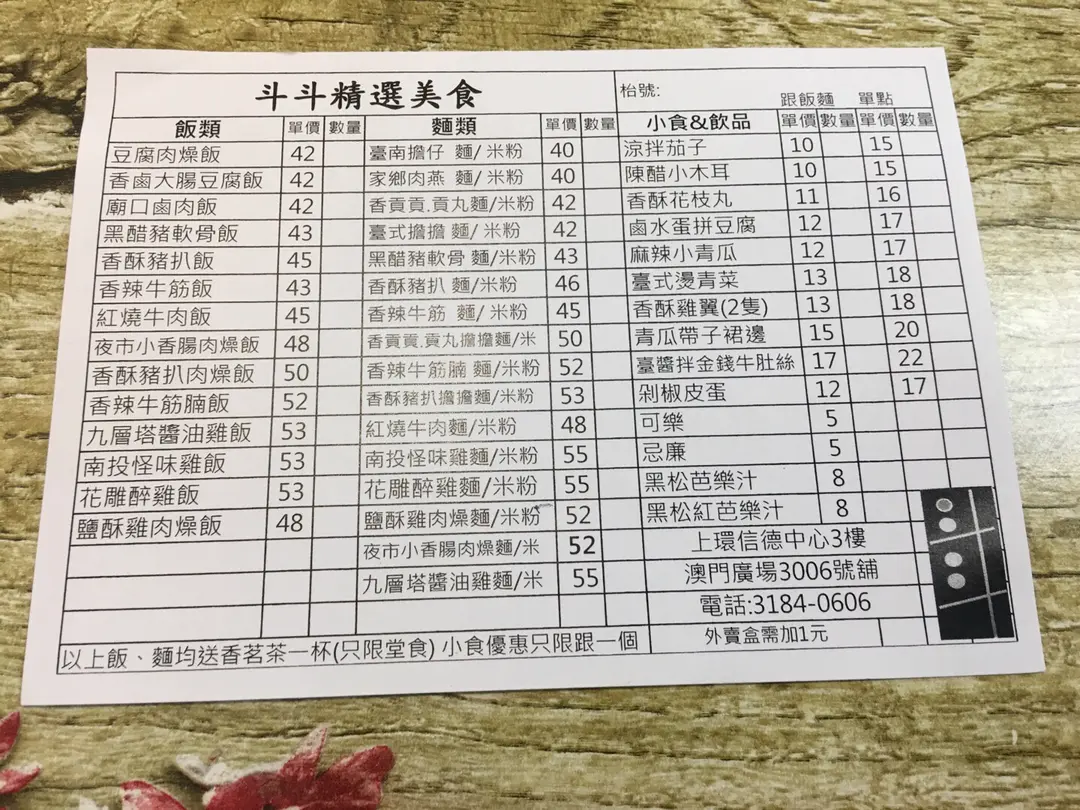 斗斗精選美食 枱號: 跟飯麵 單點
飯類 單價 數量 麵類 單價 數量 小食&飲品 單價 數量 單價 數量
豆腐肉燥飯 42 臺南擔仔 麵/ 米粉 40 涼拌茄子 10 15
香鹵大腸豆腐飯 42 家鄉肉燕 麵/ 米粉 40 陳醋小木耳 10 15
廟口鹵肉飯 42 香貢貢.貢丸麵/米粉 42 香酥花枝丸 11 16
黑醋豬軟骨飯 43 臺式擔擔 麵/ 米粉 42 鹵水蛋拼豆腐 12 17
香酥豬扒飯 45 黑醋豬軟骨 麵/米粉 43 麻辣小青瓜 12 17
香辣牛筋飯 43 香酥豬扒 麵/米粉 46 臺式燙青菜 13 18
紅燒牛肉飯 45 香辣牛筋 麵/ 米粉 45 香酥雞翼(2隻) 13 18
夜市小香腸肉燥飯 48 香貢貢.貢丸擔擔麵/米 50 青瓜帶子裙邊 15 20
香酥豬扒肉燥飯 50 香辣牛筋腩 麵/米粉 52 臺醬拌金錢牛肚絲 17 22
香辣牛筋腩飯 52 香酥豬扒擔擔麵/米粉 53 剁椒皮蛋 12 17
九層塔醬油雞飯 53 紅燒牛肉麵/米粉 48 可樂 5
南投怪味雞飯 53 南投怪味雞麵/米粉 55 忌廉 5
花雕醉雞飯 53 花雕醉雞麵/米粉 55 黑松芭樂汁 8
鹽酥雞肉燥飯 48 鹽酥雞肉燥麵/米粉 52 黑松紅芭樂汁 8
夜市小香腸肉燥麵/米 52 上環信德中心3樓
九層塔醬油雞麵/米 55 澳門廣場3006號舖
電話:3184-0606
以上飯、麵均送香茗茶一杯(只限堂食) 小食優惠只限跟一個 外賣盒需加1元